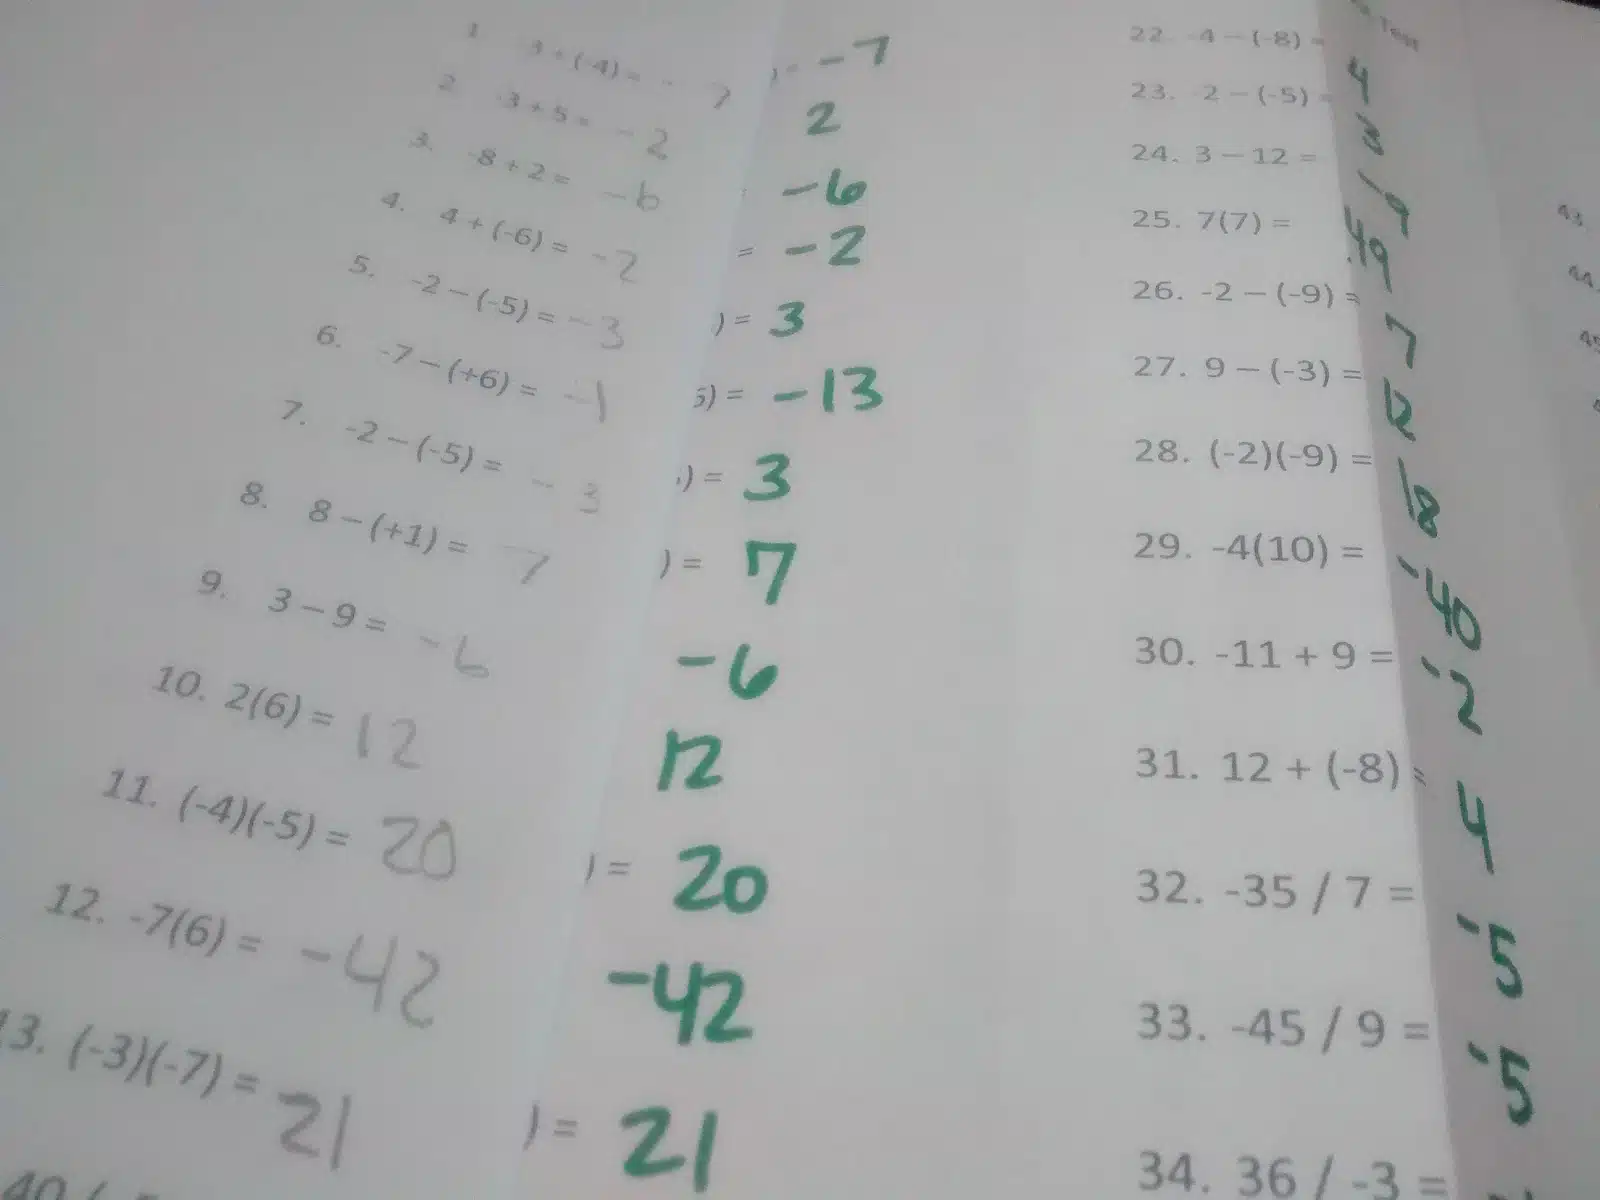 1. -3 + (-4) = - 7
2. -3 + 5 = - 2
3. -8 + 2 = -6
4. 4 + (-6) = -2
5. -2 – (-5) = -3
6. -7 – (+6) = -1
7. -2 – (-5) = - 3
8. 8 – (+1) = 7
9. 3 – 9 = -6
10. 2(6) = 12
11. (-4)(-5) = 20
12. -7(6) = -42
13. (-3)(-7) = 21
) = -7
2
-6
= -2
) = 3
6) = -13
) = 3
) = 7
-6
12
) = 20
-42
) = 21
22. -4 – (-8) =
23. -2 – (-5) =
24. 3 – 12 =
25. 7(7) =
26. -2 – (-9) =
27. 9 – (-3) =
28. (-2)(-9) =
29. -4(10) =
30. -11 + 9 =
31. 12 + (-8) =
32. -35 / 7 =
33. -45 / 9 =
34. 36 / -3 =
Test
4
3
-9
49
7
12
18
-40
-2
4
-5
-5
43.
44.